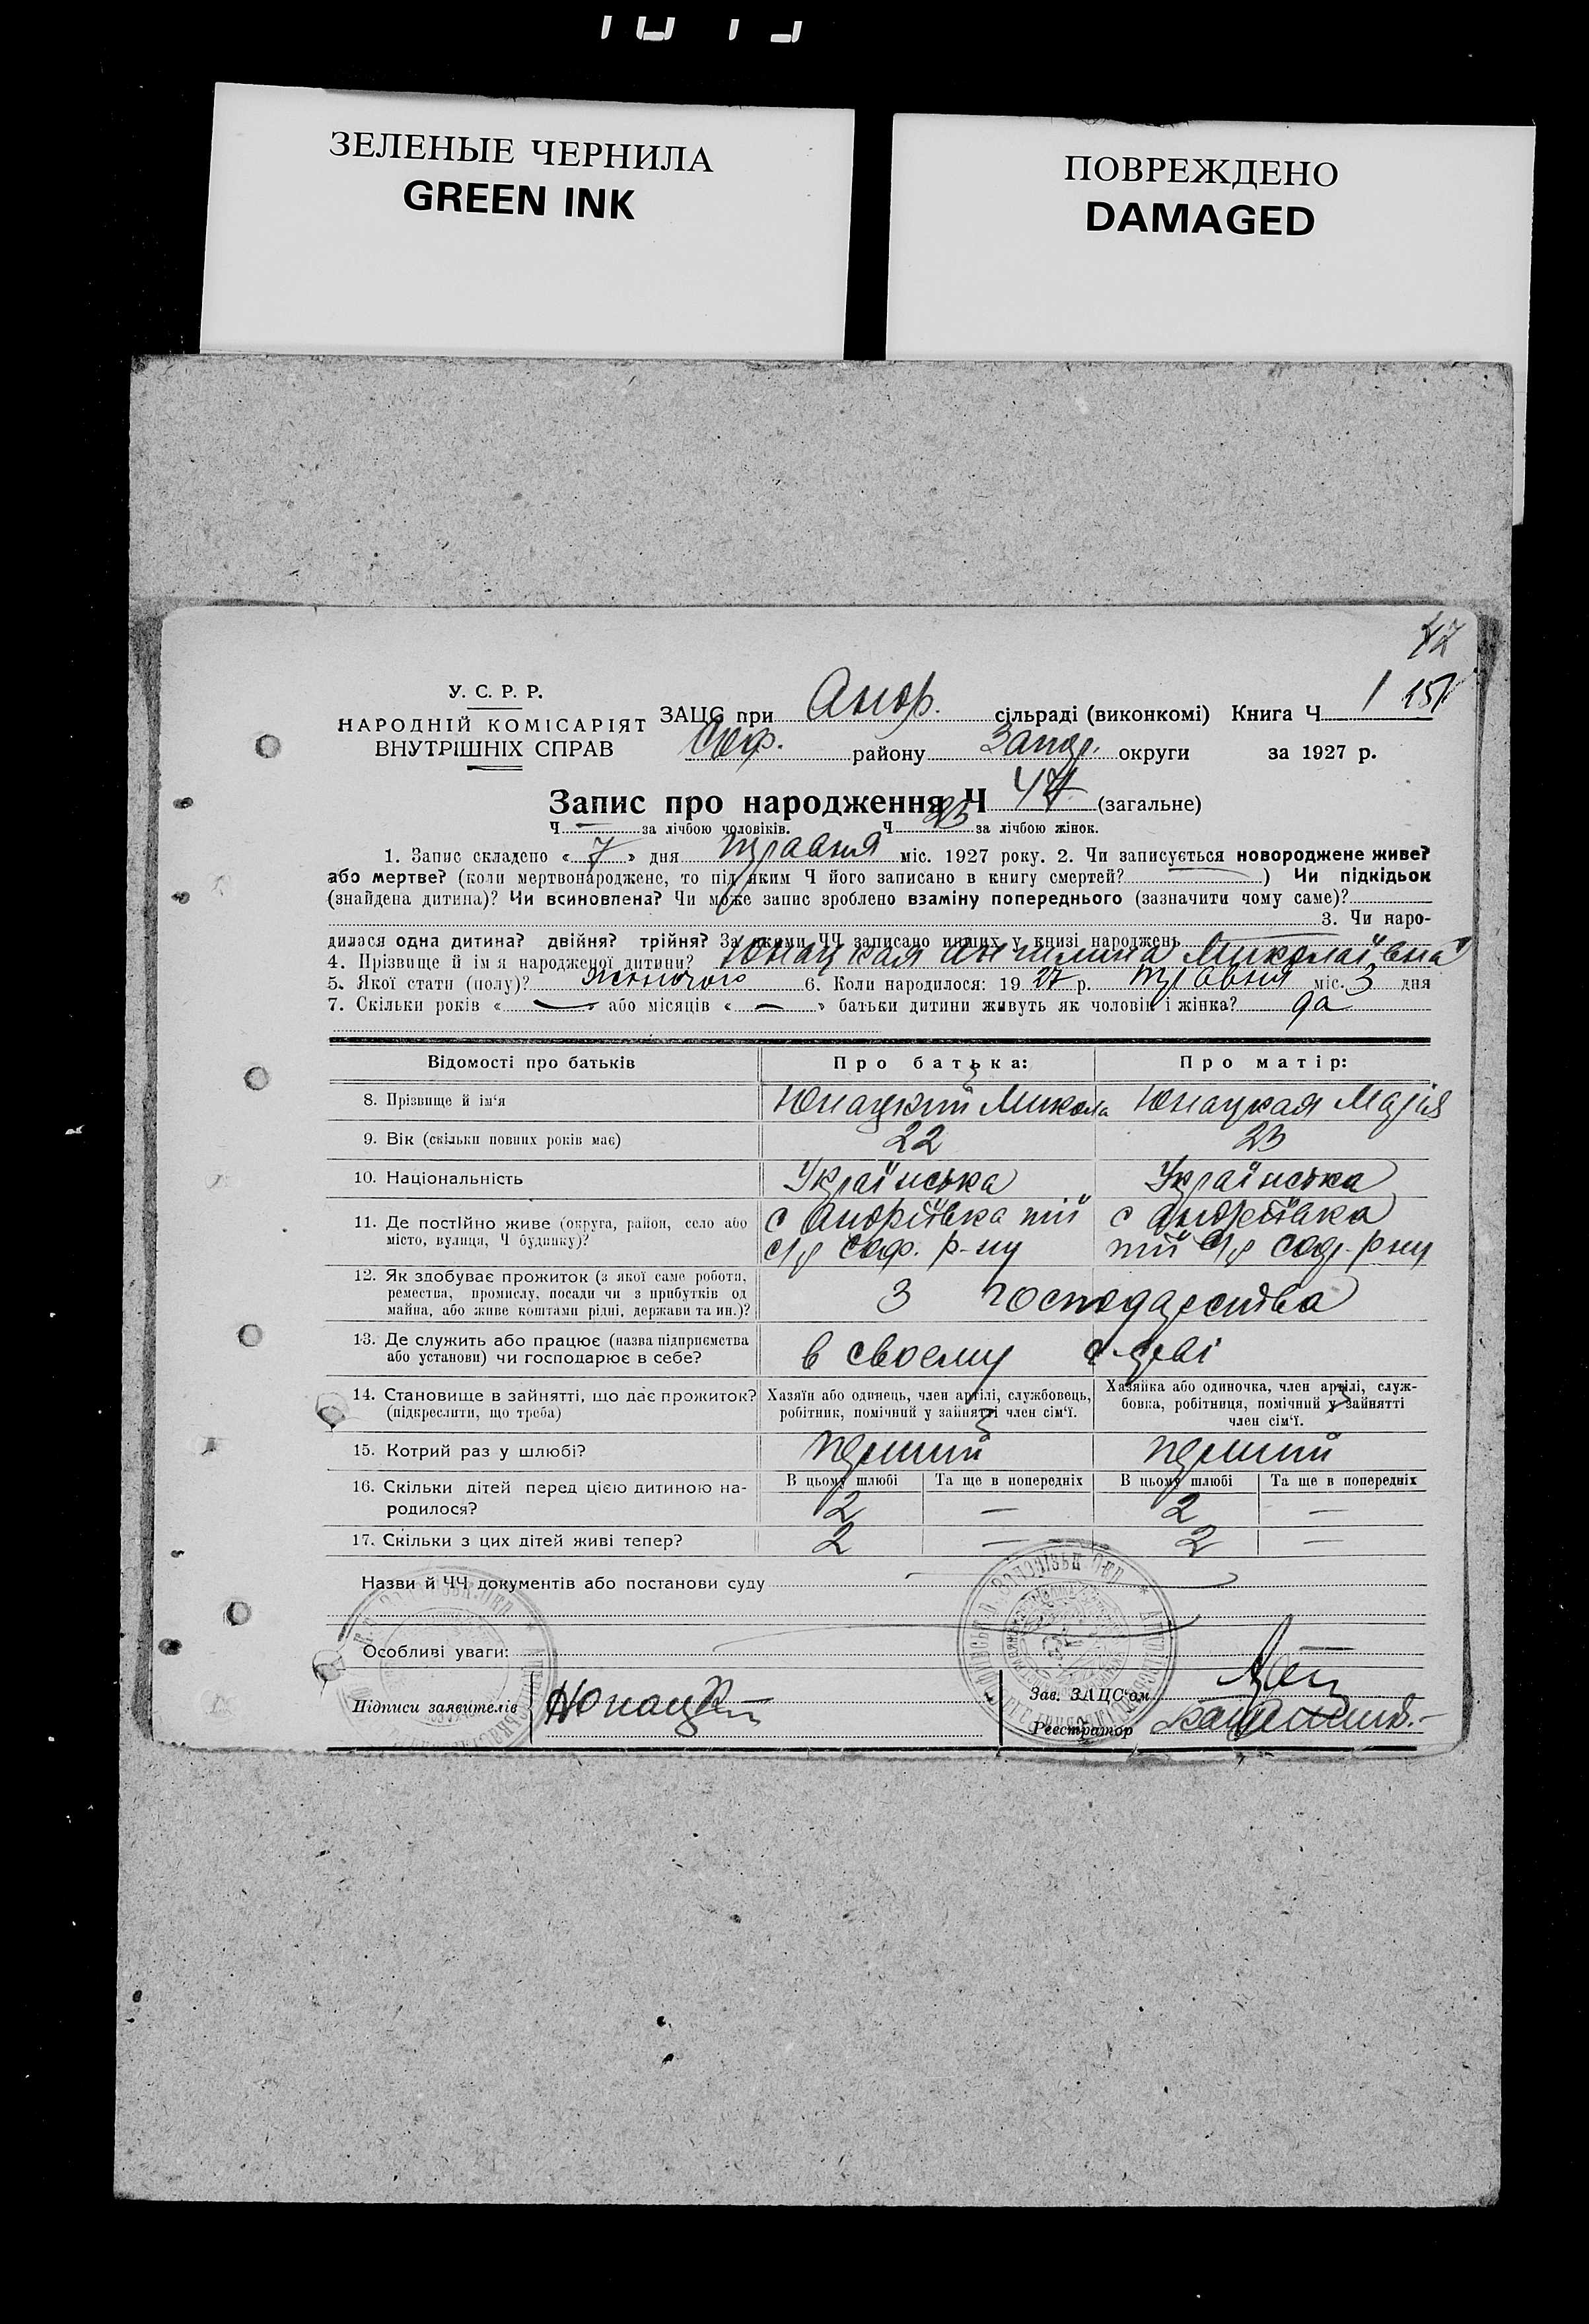 ЗЕЛЕНЫЕ ЧЕРНИЛА
GREEN INK
ПОВРЕЖДЕНО
DAMAGED
47
У. С. Р. Р.
НАРОДНІЙ КОМІСАРІЯТ
ВНУТРІШНІХ СПРАВ
ЗАЦС при Андр. сільраді (виконкомі) Книга Ч 1
Соф. району Запор. округи за 1927 р.
Запис про народження Ч 47 (загальне)
Ч — за лічбою чоловіків. Ч 23 за лічбою жінок.
1. Запис складено « 7 » дня травня міс. 1927 року. 2. Чи записується новороджене живе?
або мертве? (коли мертвонароджене, то під яким Ч його записано в книгу смертей? ) Чи підкідьок
(знайдена дитина)? Чи всиновлена? Чи може запис зроблено взаміну попереднього (зазначити чому саме)?
3. Чи наро-
дилася одна дитина? двійня? трійня? За якими ЧЧ записано инших у книзі народжень
4. Прізвище й ім я народженої дитини? Юнацкая Ангилина Миколаївна
5. Якої стати (полу)? жіночого 6. Коли народилося: 19 27 р. травня міс. 3 дня
7. Скільки років « — » або місяців « — » батьки дитини живуть як чоловік і жінка? да
Відомості про батьків Про батька: Про матір:
8. Прізвище й ім'я Юнацкий Микола Юнацкая Марія
9. Вік (скільки повних років має) 22 23
10. Національність Українська Українська
11. Де постійно живе (округа, район, село або с Андріївка тій с Андріївка
місто, вулиця, Ч будинку)? с/р Соф. р-ну тій с/р Соф. р-ну
12. Як здобуває прожиток (з якої саме роботи,
ремества, промислу, посади чи з прибутків од
майна, або живе коштами рідні, держави та ин.)? З господарства
13. Де служить або працює (назва підприємства
або установи) чи господарює в себе? в своему
14. Становище в зайнятті, що дає прожиток?
(підкреслити, що треба)
Хазяїн або одинець, член артілі, службовець,
робітник, помічний у зайнятті член сім'ї.
Хазяйка або одиночка, член артілі, служ-
бовка, робітниця, помічний у зайнятті
член сім'ї.
15. Котрий раз у шлюбі? перший перший
В цьому шлюбі Та ще в попередніх В цьому шлюбі Та ще в попередніх
16. Скільки дітей перед цією дитиною на-
родилося? 2 — 2 —
17. Скільки з цих дітей живі тепер? 2 — 2 —
Назви й ЧЧ документів або постанови суду
Особливі уваги:
Підписи заявителів Юнацкий
Зав. ЗАЦС'ом
Реєстратор